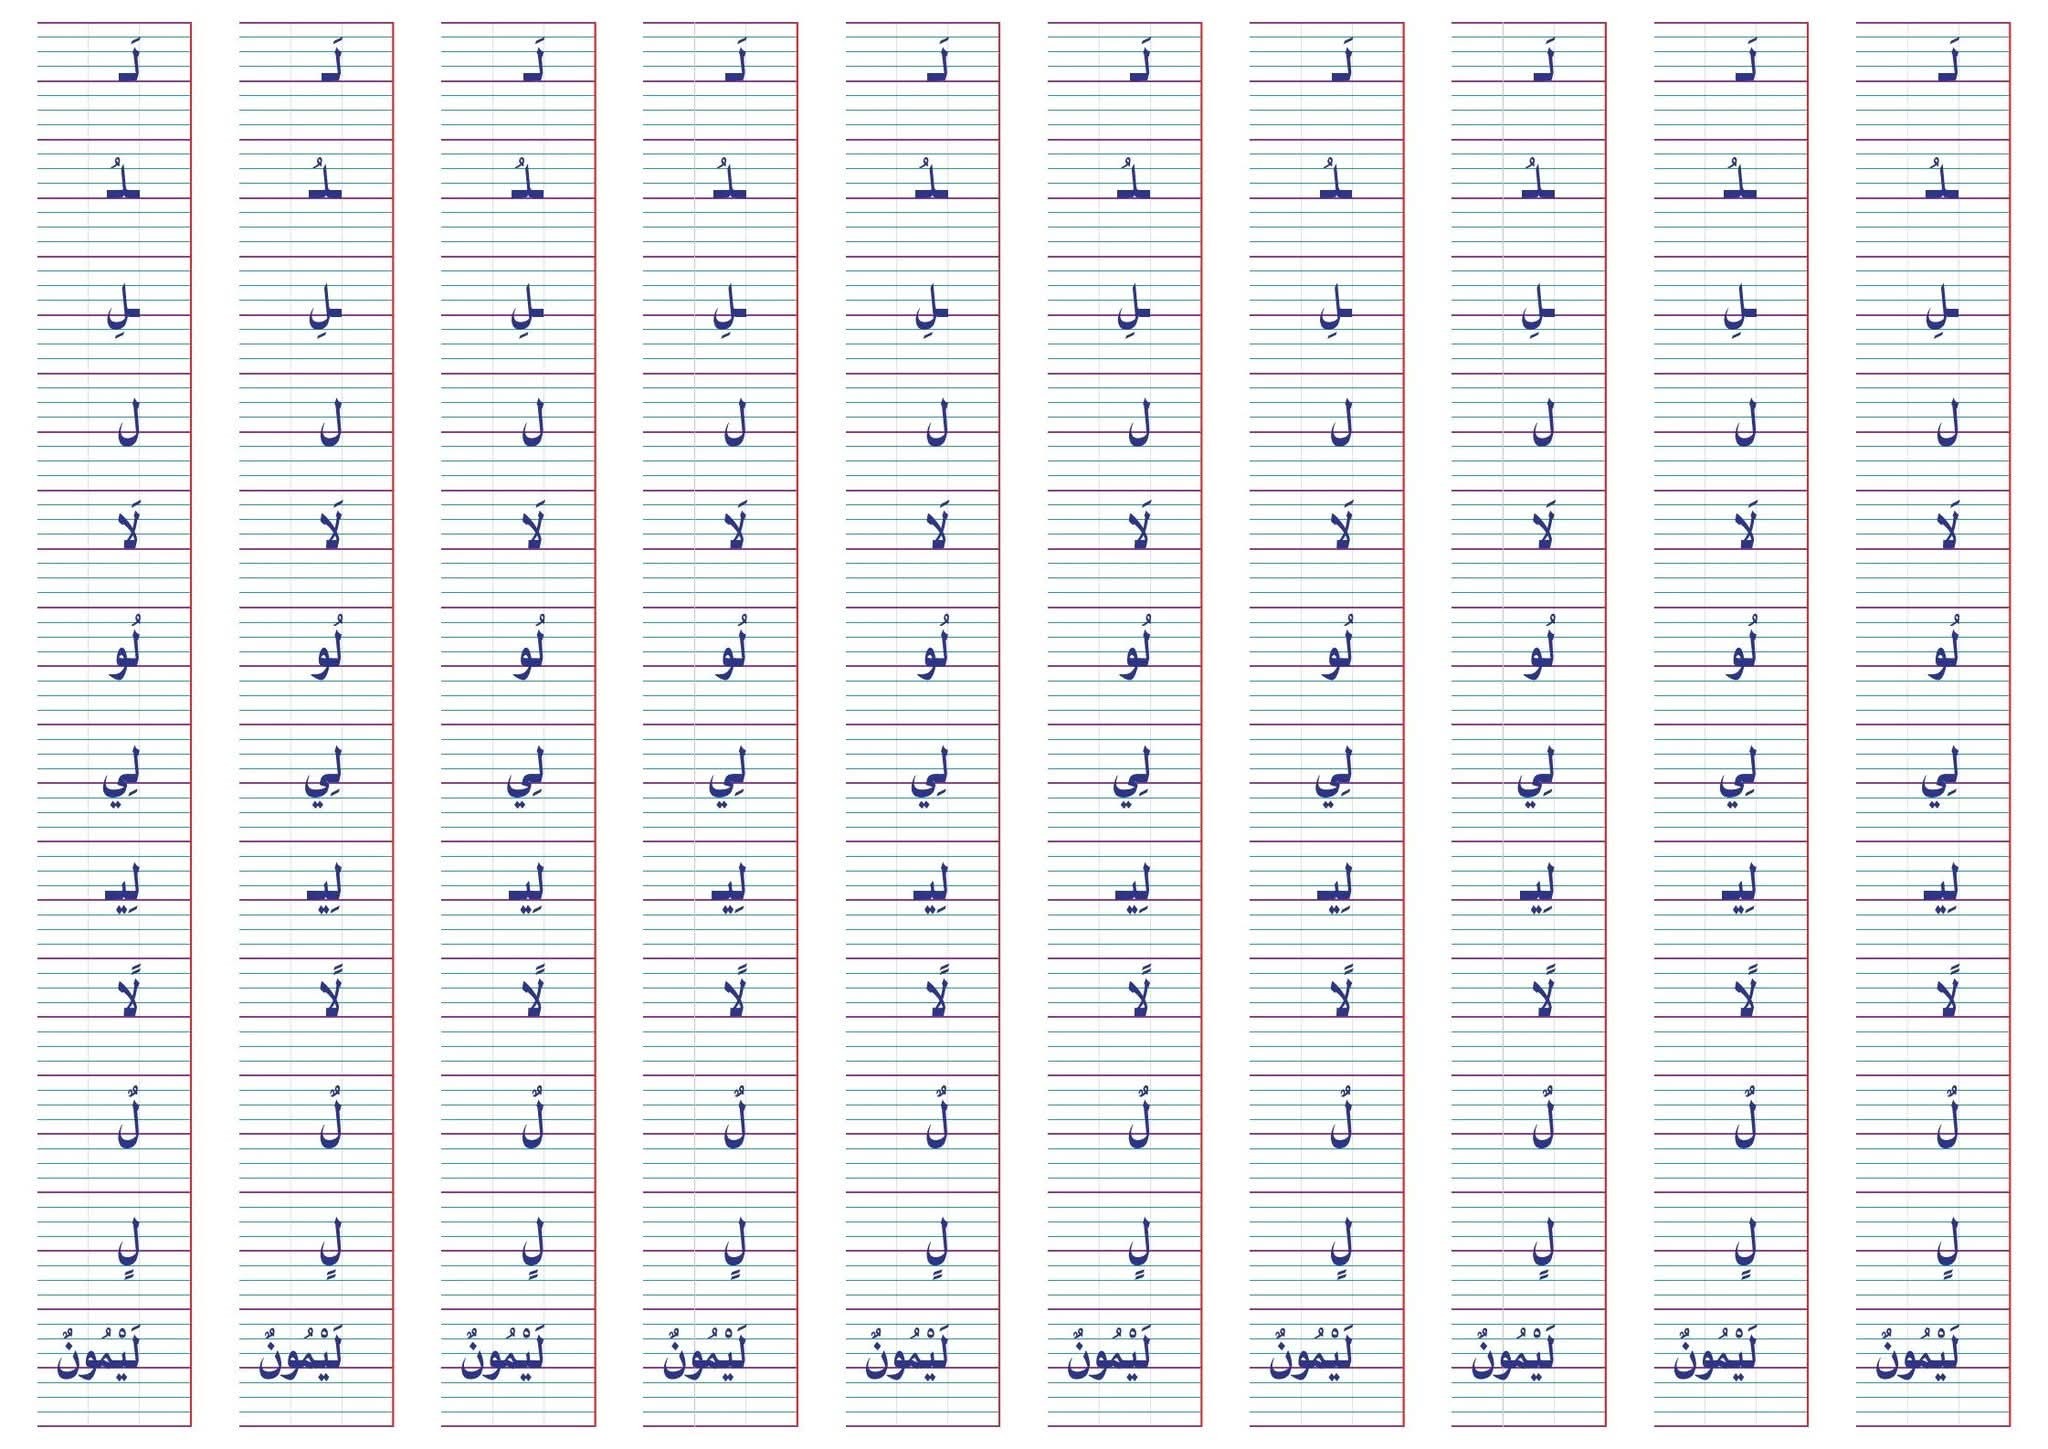 لَـ لَـ لَـ لَـ لَـ لَـ لَـ لَـ لَـ لَـ
ـلُـ ـلُـ ـلُـ ـلُـ ـلُـ ـلُـ ـلُـ ـلُـ ـلُـ ـلُـ
ـلِ ـلِ ـلِ ـلِ ـلِ ـلِ ـلِ ـلِ ـلِ ـلِ
ل ل ل ل ل ل ل ل ل ل
لَا لَا لَا لَا لَا لَا لَا لَا لَا لَا
لُو لُو لُو لُو لُو لُو لُو لُو لُو لُو
لِي لِي لِي لِي لِي لِي لِي لِي لِي لِي
لِيـ لِيـ لِيـ لِيـ لِيـ لِيـ لِيـ لِيـ لِيـ لِيـ
لًا لًا لًا لًا لًا لًا لًا لًا لًا لًا
لٌ لٌ لٌ لٌ لٌ لٌ لٌ لٌ لٌ لٌ
لٍ لٍ لٍ لٍ لٍ لٍ لٍ لٍ لٍ لٍ
لَيْمُونٌ لَيْمُونٌ لَيْمُونٌ لَيْمُونٌ لَيْمُونٌ لَيْمُونٌ لَيْمُونٌ لَيْمُونٌ لَيْمُونٌ لَيْمُونٌ